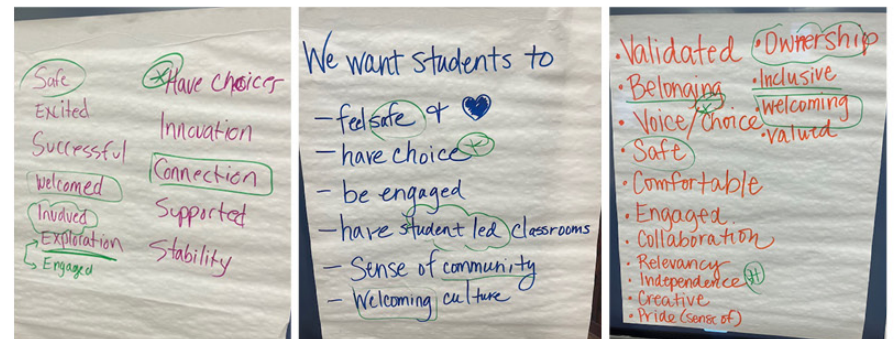 Safe
Excited
Successful
Welcomed
Involved
Exploration
Engaged
* Have choices
Innovation
Connection
Supported
Stability
We want students to
- feel safe & ♥
- have choice *
- be engaged
- have student led classrooms
- Sense of community
- Welcoming culture
• Validated
• Belonging
• Voice/choice *
• Safe
• Comfortable
• Engaged.
• Collaboration
• Relevancy
• Independence
• Creative
• Pride (sense of)
• Ownership
• Inclusive
• welcoming
• valued